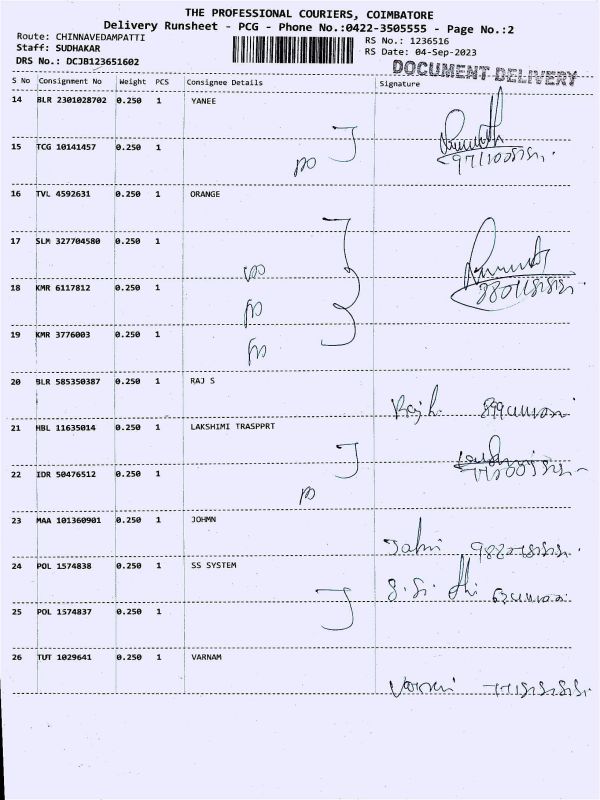 THE PROFESSIONAL COURIERS, COIMBATORE
Delivery Runsheet - PCG - Phone No.:0422-3505555 - Page No.:2
Route: CHINNAVEDAMPATTI
RS No.: 1236516
Staff: SUDHAKAR
RS Date: 04-Sep-2023
DRS No.: DCJB123651602
DOCUMENT DELIVERY
S No Consignment No Weight PCS Consignee Details Signature
14 BLR 2301028702 0.250 1 YANEE
15 TCG 10141457 0.250 1
16 TVL 4592631 0.250 1 ORANGE
17 SLM 327704580 0.250 1
18 KMR 6117812 0.250 1
19 KMR 3776003 0.250 1
20 BLR 585350387 0.250 1 RAJ S
21 HBL 11635014 0.250 1 LAKSHIMI TRASPPRT
22 IDR 50476512 0.250 1
23 MAA 101360901 0.250 1 JOHMN
24 POL 1574838 0.250 1 SS SYSTEM
25 POL 1574837 0.250 1
26 TUT 1029641 0.250 1 VARNAM